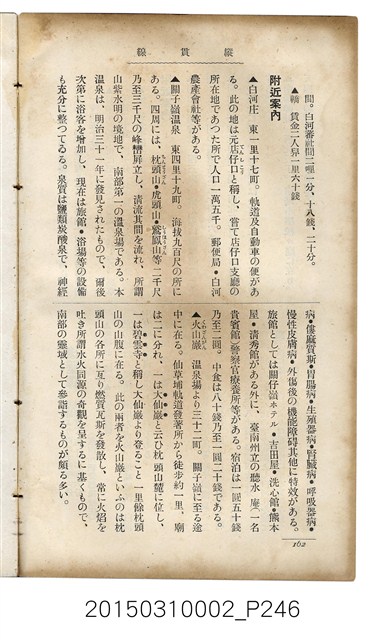 縱貫線
間。白河蕃社間二哩一分、十八錢、二十分。
▲轎 賃金二人舁一里六十錢
附近案內
▲白河庄 東一里十七町。軌道及自動車の便があ
る。此の地は元店仔口と稱し、嘗て店仔口支廳の
所在地であつた所で人口一萬五千。郵便局・白河
農產會社等がある。
▲關子嶺溫泉 東四里十九町。海拔九百尺の所に
ある。四周には、枕頭山・虎頭山・鷲鳳山等二千尺
乃至三千尺の峰巒屛立し、清流其間を流れ、所謂
山紫水明の境地で、南部第一の溫泉場である。本
溫泉は、明治三十一年に發見されたもので、爾後
次第に浴客を增加し、現在は旅館・浴場等の設備
も充分に整つてゐる。泉質は鹽類炭酸泉で、神經
病・僂麻質斯・胃腸病・生殖器病・腎臟病・呼吸器病・
慢性皮膚病・外傷後の機能障碍其他に特效がある。
旅館としては關仔嶺ホテル・吉田屋・洗心館・熊本
屋・清秀館がある外に、臺南州立の聽水庵(一名
貴賓館)警察官療養所等がある。宿泊は一圓五十錢
乃至三圓。中食は八十錢乃至一圓二十錢である。
▲火山巖 溫泉場より三十二町。關子嶺に至る途
中に在る。仙草埔軌道發著所から徒步約一里。廟
は二に分れ、一は大仙巖と云ひ枕頭山麓に位し、
一は碧雲寺と稱し大仙巖より登ること一里餘枕頭
山の山腹に在る。此の兩者を火山巖といふのは枕
頭山の各所に互り燃質瓦斯を發散し、常に火焰を
吐き所謂水火同源の奇觀を呈するに基くもので、
南部の靈域として參詣するものが頗る多い。
162
20150310002_P246